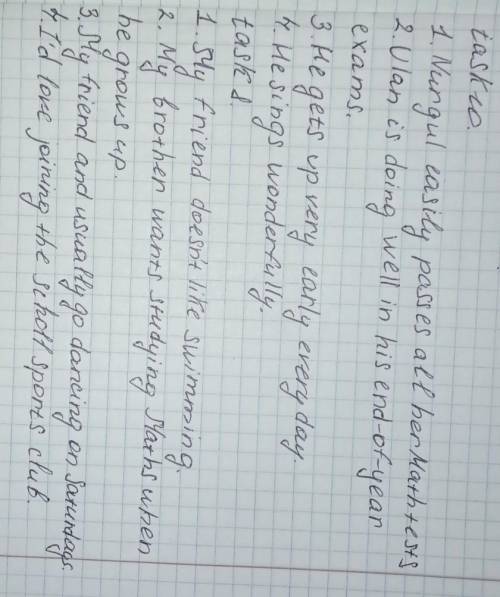 task 10.
1. Nurgul easily passes all her Math tests
2. Ulan is doing well in his end-of-year
exams.
3. He gets up very early every day.
4. He sings wonderfully.
task 8.
1. My friend doesn't like swimming.
2. My brother wants studying Maths when
he grows up.
3. My friend and usually go dancing on Saturdays.
4. I'd love joining the scholl sports club.